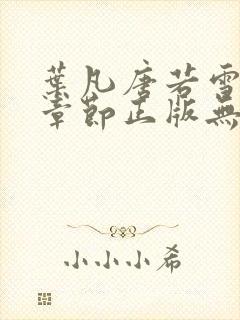 葉凡唐若雪
章節正版無
小小小希